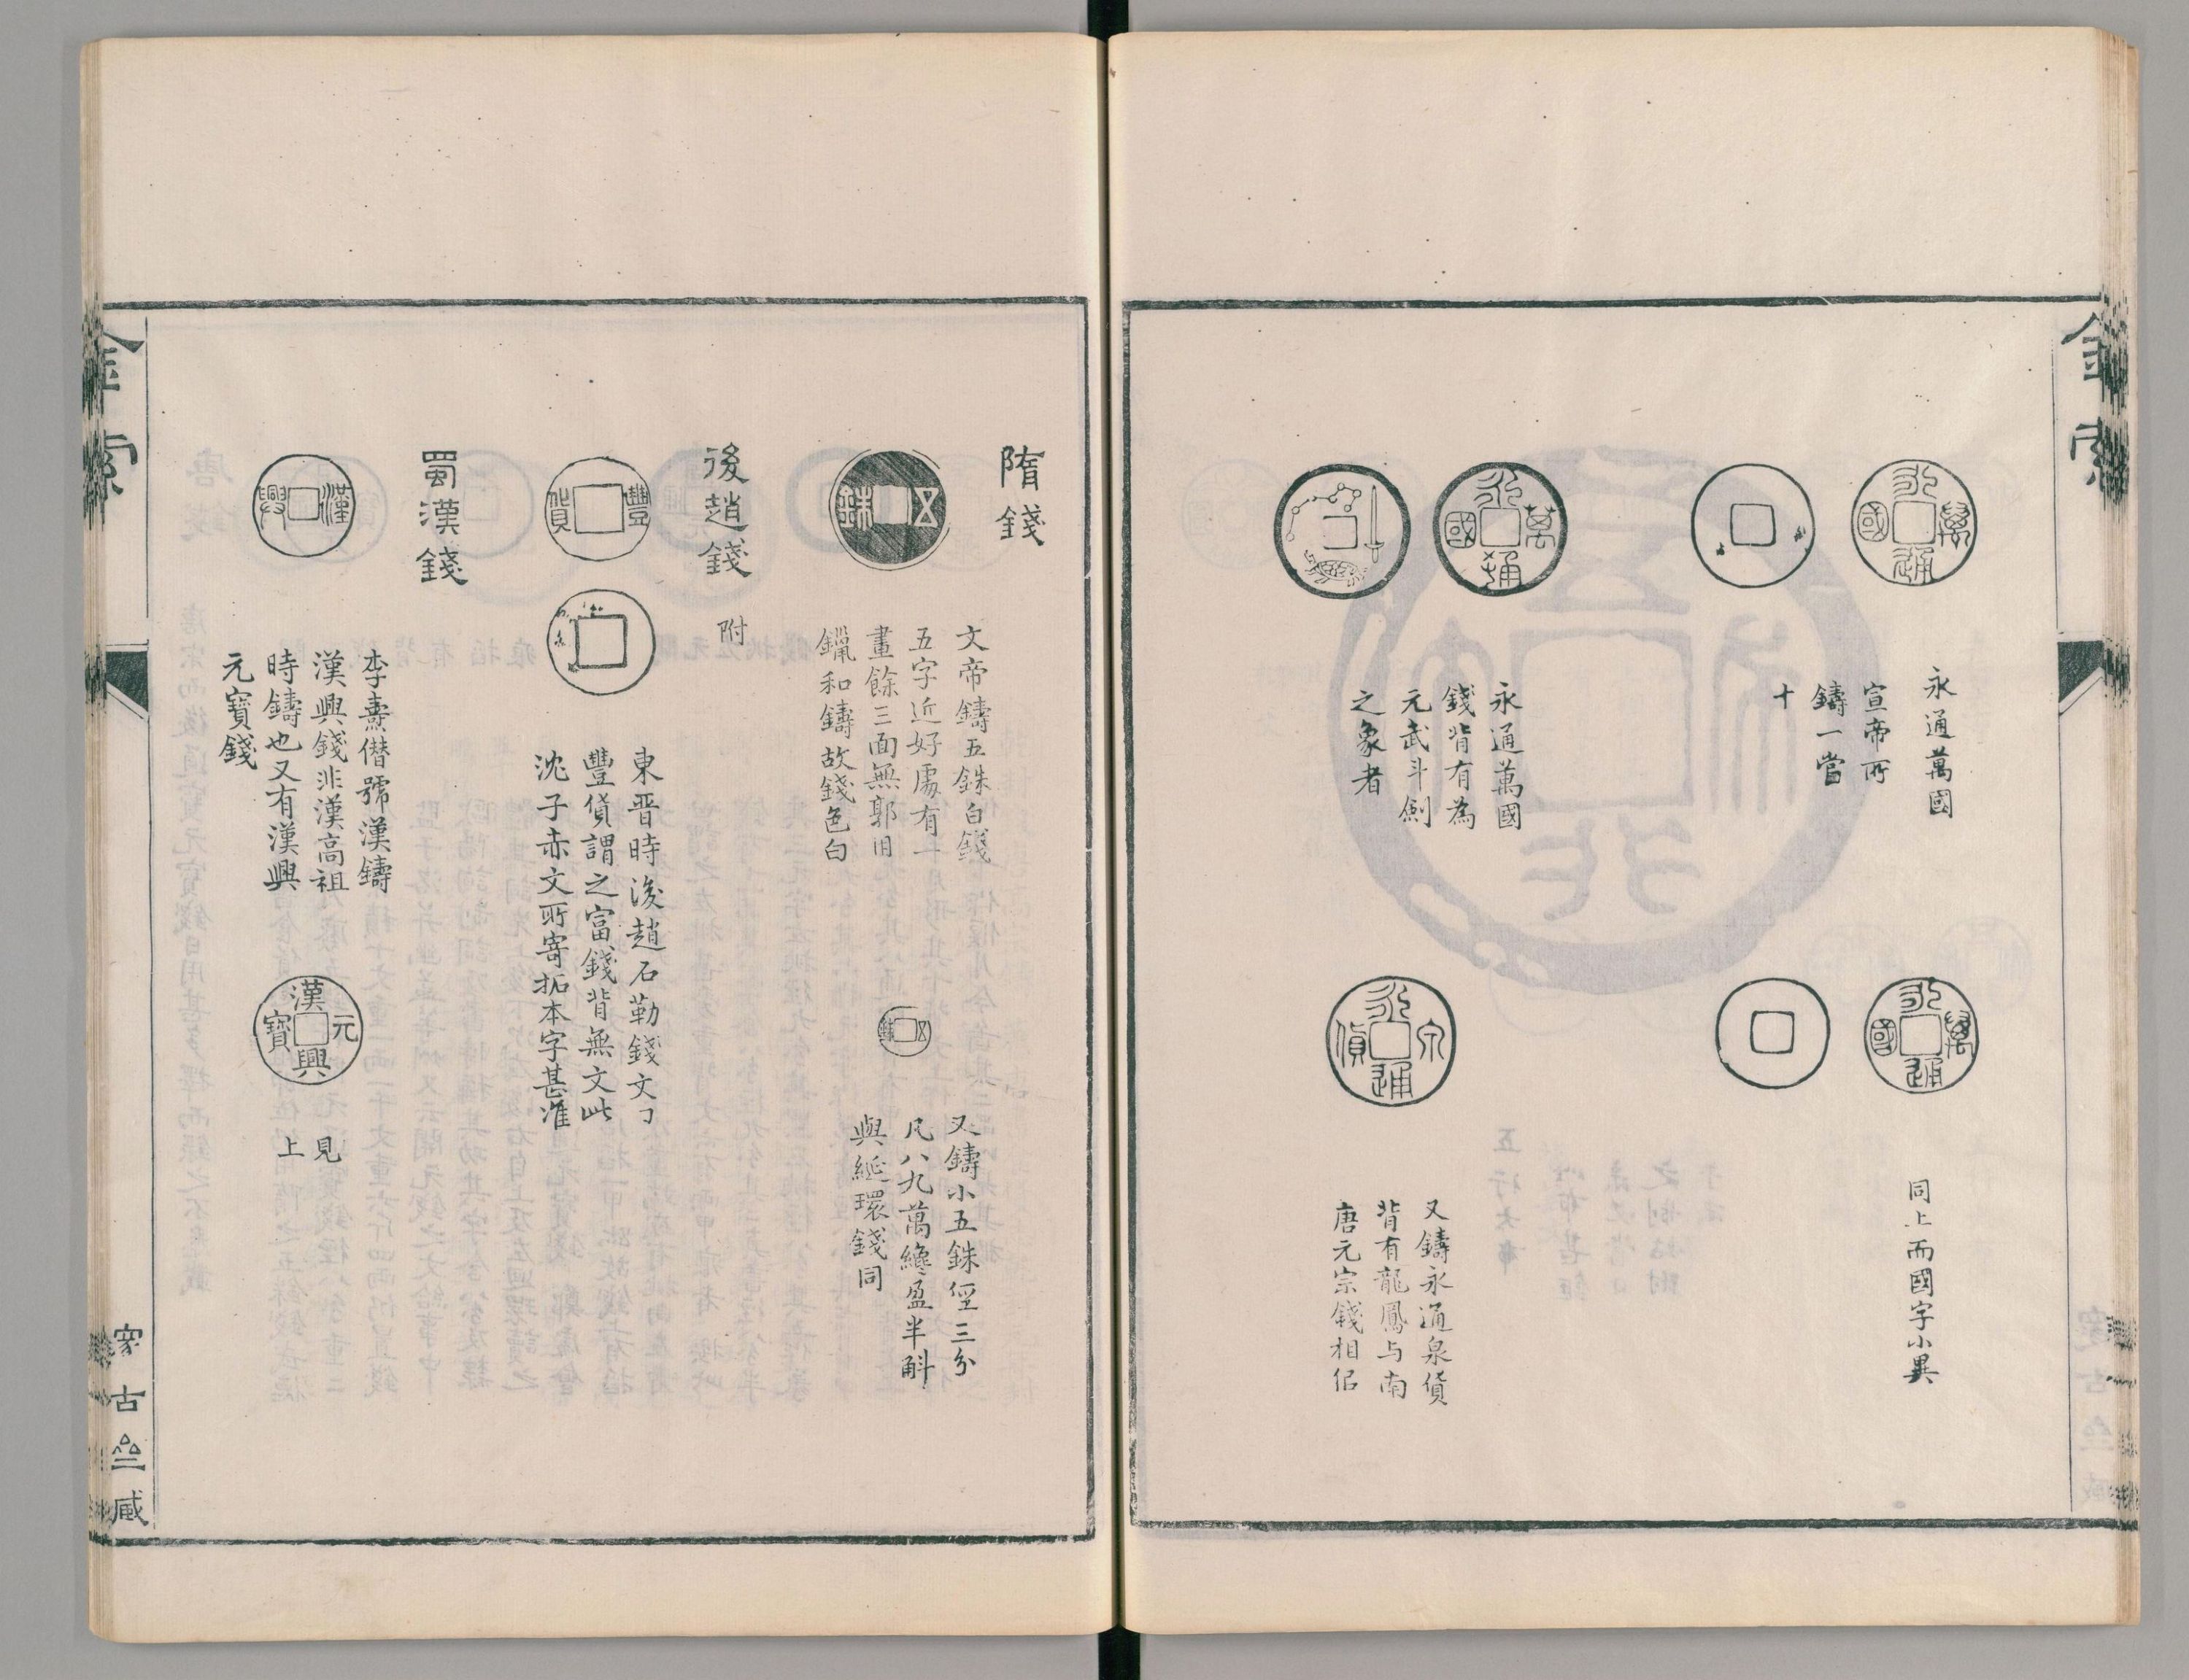 金索
永通萬國
永通萬國
宣帝所
鑄一當
十
永通萬國
永通萬國
錢背有為
元武斗劍
之象者
永通萬國
同上而國字小異
永通泉貨
又鑄永通泉貨
背有龍鳳与南
唐元宗錢相佀
隋錢
五銖
文帝鑄五銖白錢
五字近好處有一
畫餘三面無郭用
鑞和鑄故錢色白
五銖
又鑄小五銖徑三分
凡八九萬纔盈半斛
與綖環錢同
後趙錢
附
豐貨
東晉時後趙石勒錢文曰
豐貨謂之富錢背無文此
沈子赤文所寄拓本字甚準
蜀漢錢
漢興
李壽僭號漢鑄
漢興錢非漢高祖
時鑄也又有漢興
元寶錢
漢興元寶
見
上
金索
古
臧